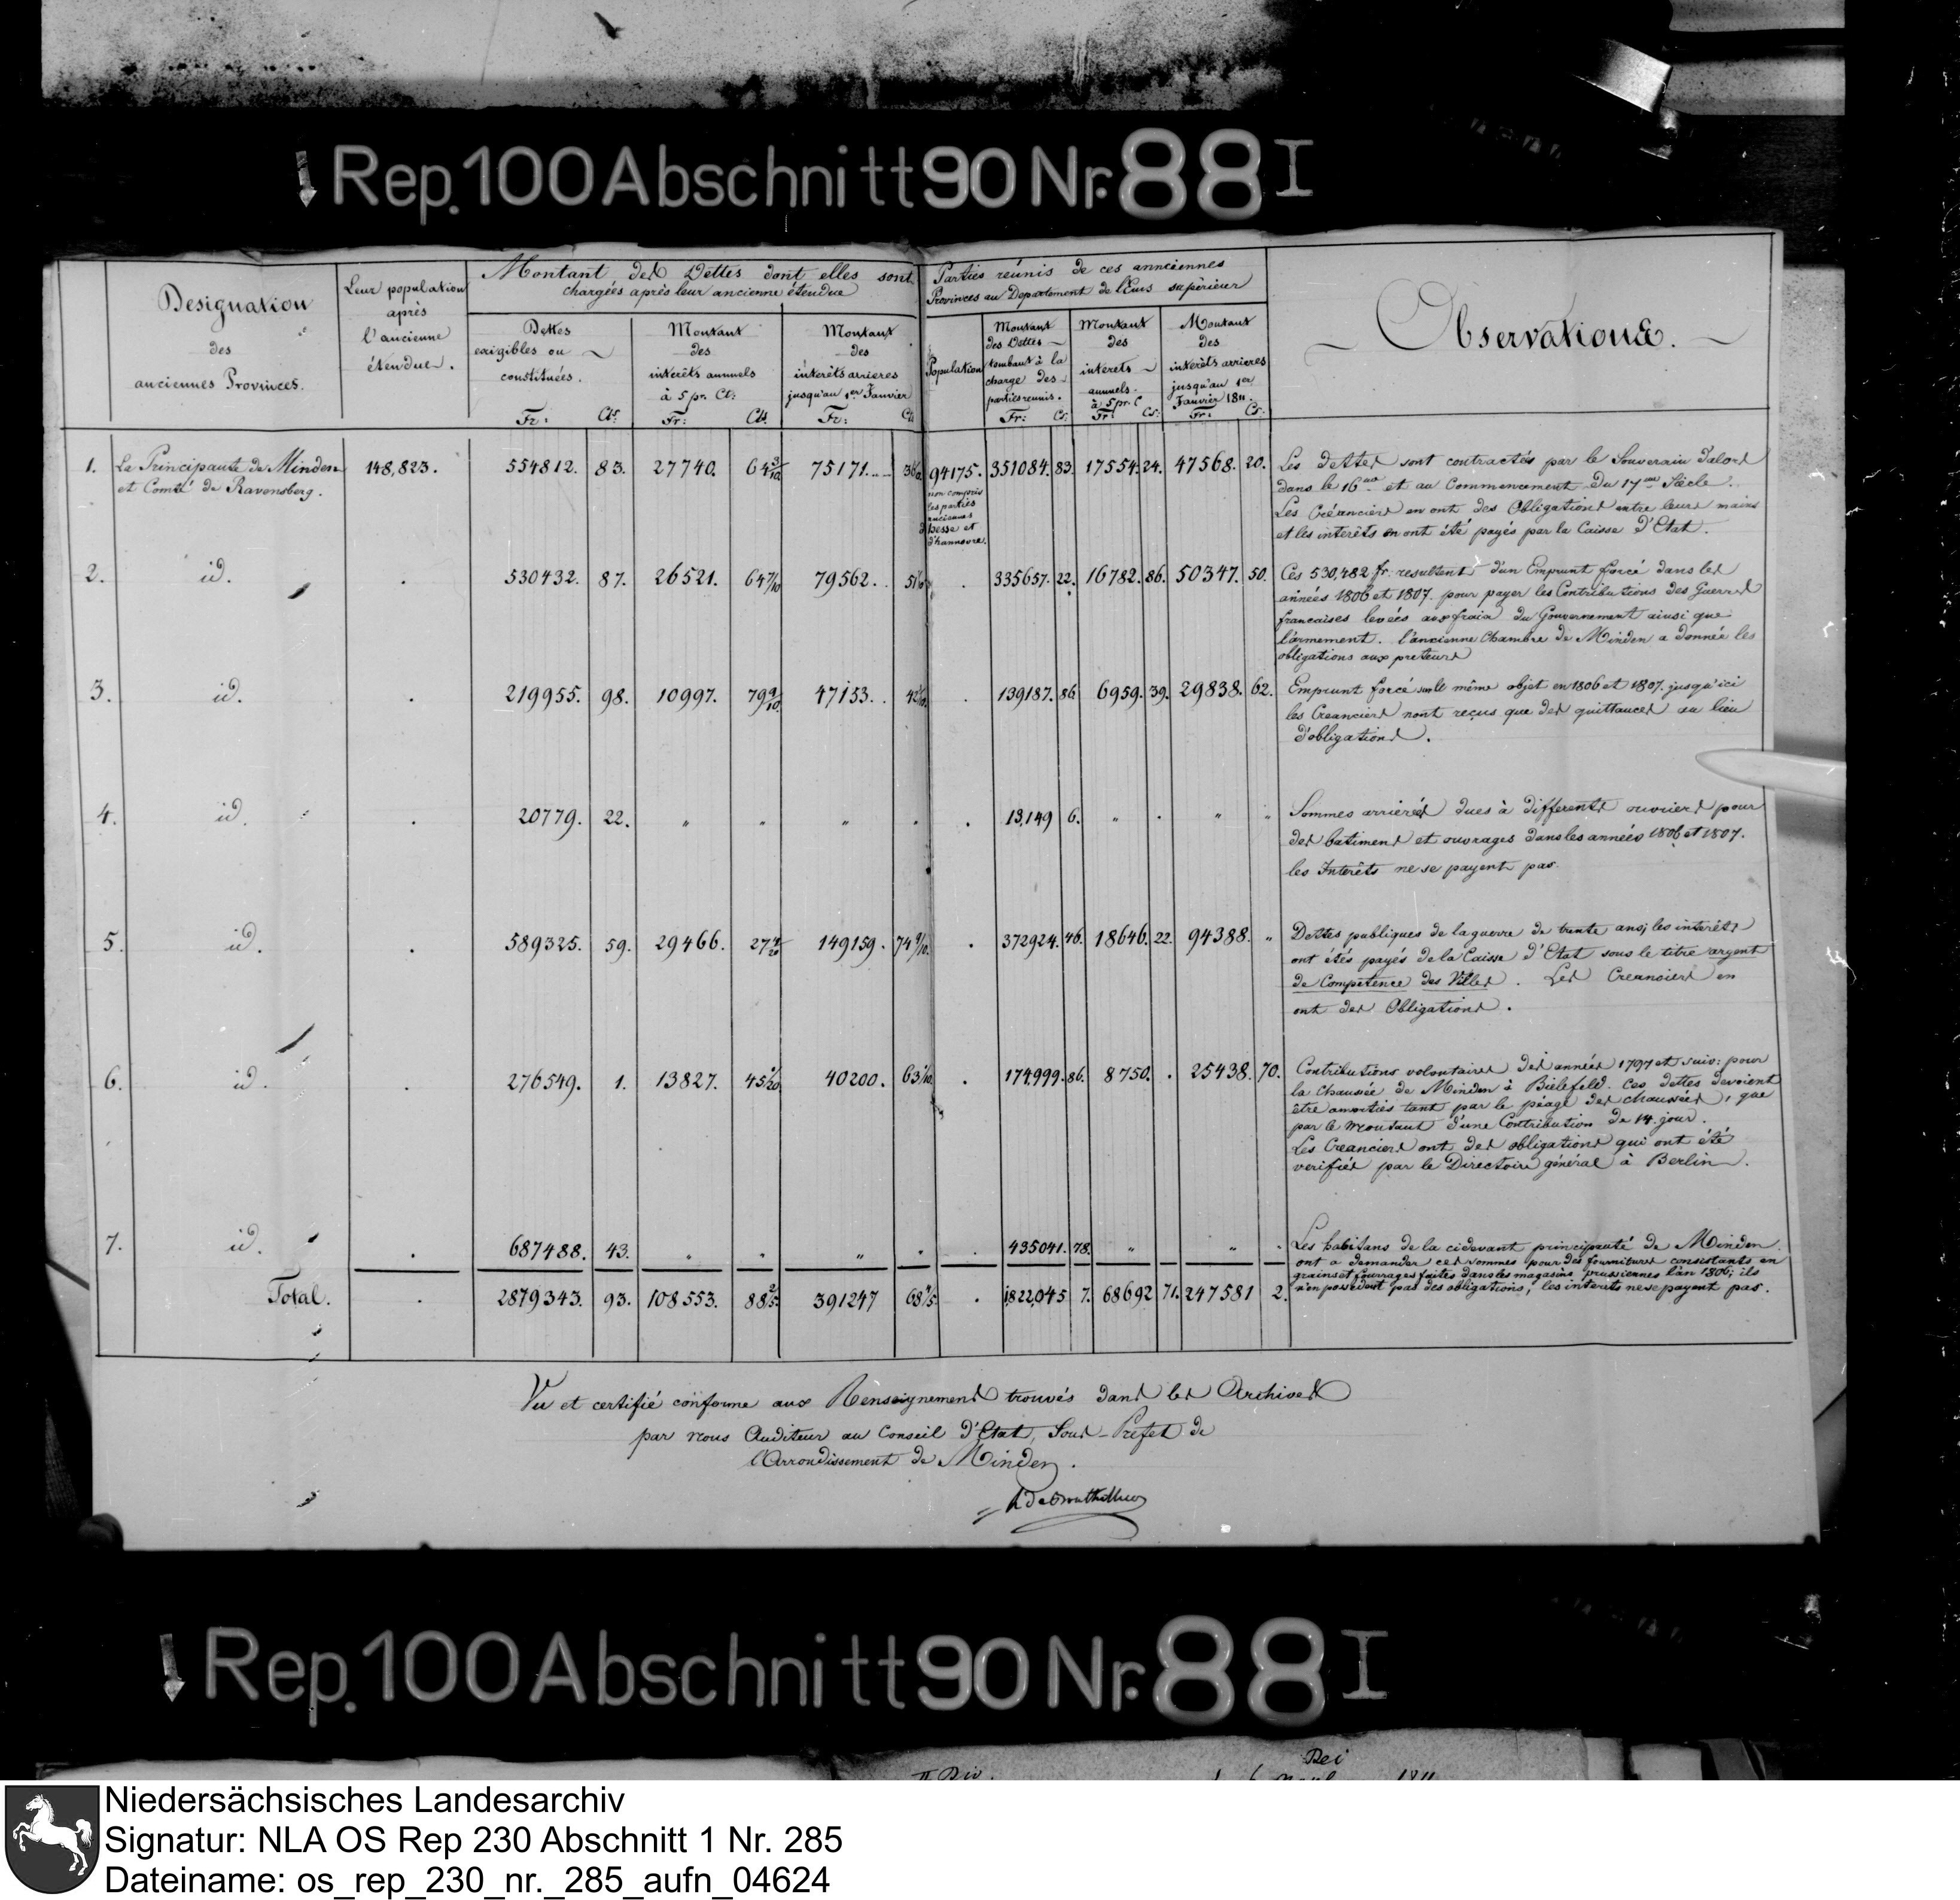 Rep. 100 Abschnitt 90 Nr. 88 I
Designation
des
anciennes Provinces.
Leur population
après
l'ancienne
étendue.
Montant des Dettes dont elles sont
chargées après leur ancienne étendue
Dettes
exigibles ou
constituées.
Fr: Cts:
Montant
des
interêts annuels
à 5 pr. Ct:
Fr: Cts.
Montant
des
intérêts arrieres
jusqu'au 1er Janvier
Fr: Cts
Parties réunis de ces annciennes
Provinces au Departement de l'Ems supérieur
Population
Montant
des Dettes
tombant à la
charge des
parties reunis.
Fr: Cs:
Montant
des
intérets
annuels.
à 5 pr. C
Fr: Cs:
Montant
des
intérêts arrieres
jusqu'au 1er
Janvier 1811.
Fr: Cs:
Observations.
1. La Principauté de Minden 148,823. 554812. 83. 27740. 64 3/10 75171. 36 94175. 351084. 83. 17554. 24. 47568. 20.
et Comté de Ravensberg.
non compris
les parties
anciennes
d'hesse et
d'hannovre.
Les dettes sont contractés par le Souverain d'alors
dans le 16me et au Commencement du 17me Siécle.
Les Créanciers en ont des Obligations entre leurs mains
et les interêts en ont été payés par la Caisse d'Etat.
2. id. . 530432. 87. 26521. 64 7/10 79562. 51 . 335657. 22. 16782. 86. 50347. 50.
Ces 530,482 fr. resultent d'un Emprunt forcé dans les
années 1806 et 1807. pour payer les Contributions des Guerres
francaises levées aux frais du Gouvernement ainsi que
l'armement. l'ancienne Chambre de Minden a donnée les
obligations aux preteurs
3. id. . 219955. 98. 10997. 79 9/10. 47153. 42 . 139187. 86 6959. 39. 29838. 62.
Emprunt forcé sur le même objet en 1806 et 1807. jusqu'ici
les Creanciers n'ont reçus que des quittances au lieu
d'obligations.
4. id. . 20779. 22. " " " . . 13,149 6. " . " "
Sommes arriérés dues à differents ouvriers pour
des batimens et ouvrages dans les années 1806 et 1807.
les Interêts ne se payent pas.
5. id. . 589325. 59. 29466. 27 149159. 74 9/10. . 372924. 46. 18646. 22. 94388. "
Dettes publiques de la guerre de trente ans; les interêts
ont étés payés de la Caisse d'Etat sous le titre argent
de Compétence des Villes. Les Creanciers en
ont des Obligations.
6. id. . 276549. 1. 13827. 45 1/20 40200. 63 . 174999. 86. 8750. . 25438. 70.
Contributions volontaires des année 1797 et suiv: pour
la chaussée de Minden à Bielefeld. Ces dettes devoient
être amorties tant par le péage des chaussées, que
par le montant d'une Contribution de 14. jour.
Les Creanciers ont des obligations qui ont été
verifiés par le Directoire général à Berlin.
7. id. . 687488. 43. " " " . . 435041. 78. " " .
Les habitans de la cidevant principauté de Minden
ont a demander ces sommes pour des fournitures consistants en
grains et fourrages faites dans les magasins prussiennes l'an 1806; ils
n'en possedent pas des obligations; les interets ne se payent pas.
Total. . 2879343. 93. 108553. 88 2/5. 391247 68 . 1,822,045 7. 68692 71. 247581 2.
Vu et certifié conforme aux Renseignemens trouvés dans les Archives
par nous Auditeur au Conseil d'Etat, Sous-Préfet de
l'Arrondissement de Minden.
Rep. 100 Abschnitt 90 Nr. 88 I
Niedersächsisches Landesarchiv
Signatur: NLA OS Rep 230 Abschnitt 1 Nr. 285
Dateiname: os_rep_230_nr._285_aufn_04624